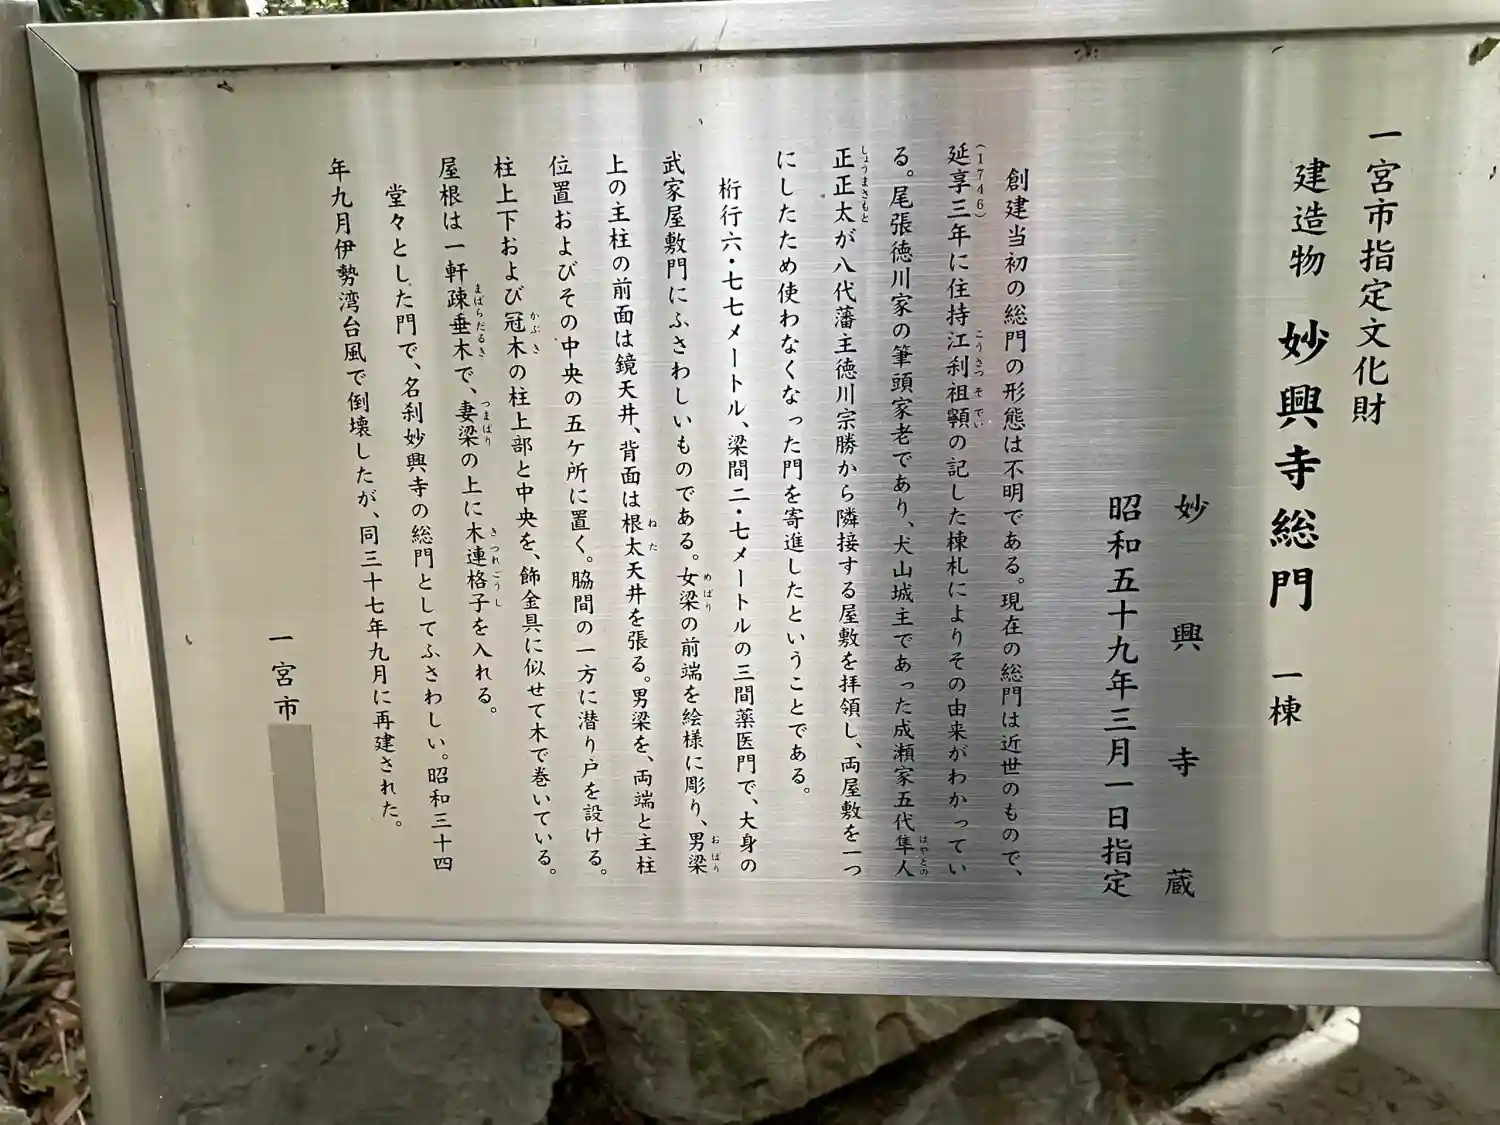 一宮市指定文化財
建造物 妙興寺総門 一棟
妙興寺蔵
昭和五十九年三月一日指定
創建当初の総門の形態は不明である。現在の総門は近世のもので、
延享三年(1746)に住持江利祖顰の記した棟札によりその由来がわかってい
る。尾張徳川家の筆頭家老であり、犬山城主であった成瀬家五代隼人
正正太が八代藩主徳川宗勝から隣接する屋敷を拝領し、両屋敷を一つ
にしたため使わなくなった門を寄進したということである。
桁行六・七七メートル、梁間二・七メートルの三間薬医門で、大身の
武家屋敷門にふさわしいものである。女梁の前端を絵様に彫り、男梁
上の主柱の前面は鏡天井、背面は根太天井を張る。男梁を、両端と主柱
位置およびその中央の五ケ所に置く。脇間の一方に潜り戸を設ける。
柱上下および冠木の柱上部と中央を、飾金具に似せて木で巻いている。
屋根は一軒疎垂木で、妻梁の上に木連格子を入れる。
堂々とした門で、名刹妙興寺の総門としてふさわしい。昭和三十四
年九月伊勢湾台風で倒壊したが、同三十七年九月に再建された。
一宮市